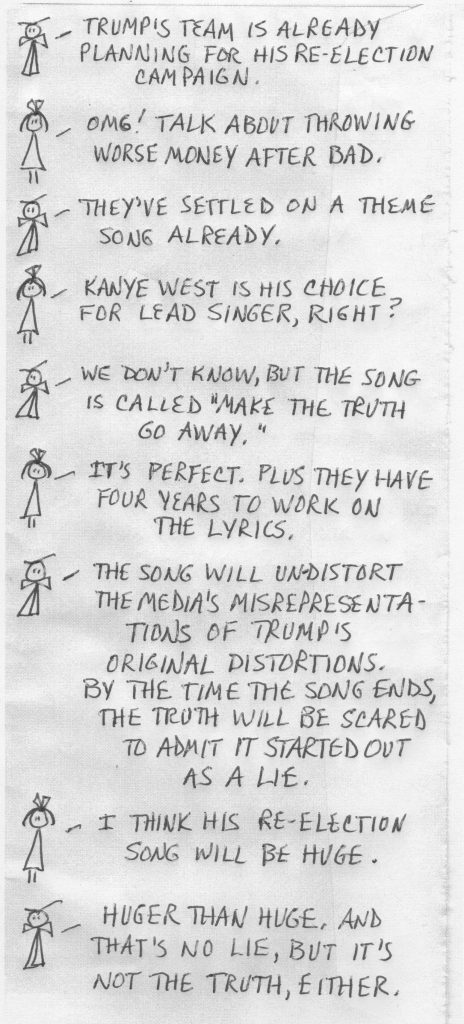 TRUMP'S TEAM IS ALREADY
PLANNING FOR HIS RE-ELECTION
CAMPAIGN.
OMG! TALK ABOUT THROWING
WORSE MONEY AFTER BAD.
THEY'VE SETTLED ON A THEME
SONG ALREADY.
KANYE WEST IS HIS CHOICE
FOR LEAD SINGER, RIGHT?
WE DON'T KNOW, BUT THE SONG
IS CALLED "MAKE THE TRUTH
GO AWAY."
IT'S PERFECT. PLUS THEY HAVE
FOUR YEARS TO WORK ON
THE LYRICS.
THE SONG WILL UN-DISTORT
THE MEDIA'S MISREPRESENTA-
TIONS OF TRUMP'S
ORIGINAL DISTORTIONS.
BY THE TIME THE SONG ENDS,
THE TRUTH WILL BE SCARED
TO ADMIT IT STARTED OUT
AS A LIE.
I THINK HIS RE-ELECTION
SONG WILL BE HUGE.
HUGER THAN HUGE. AND
THAT'S NO LIE, BUT IT'S
NOT THE TRUTH, EITHER.